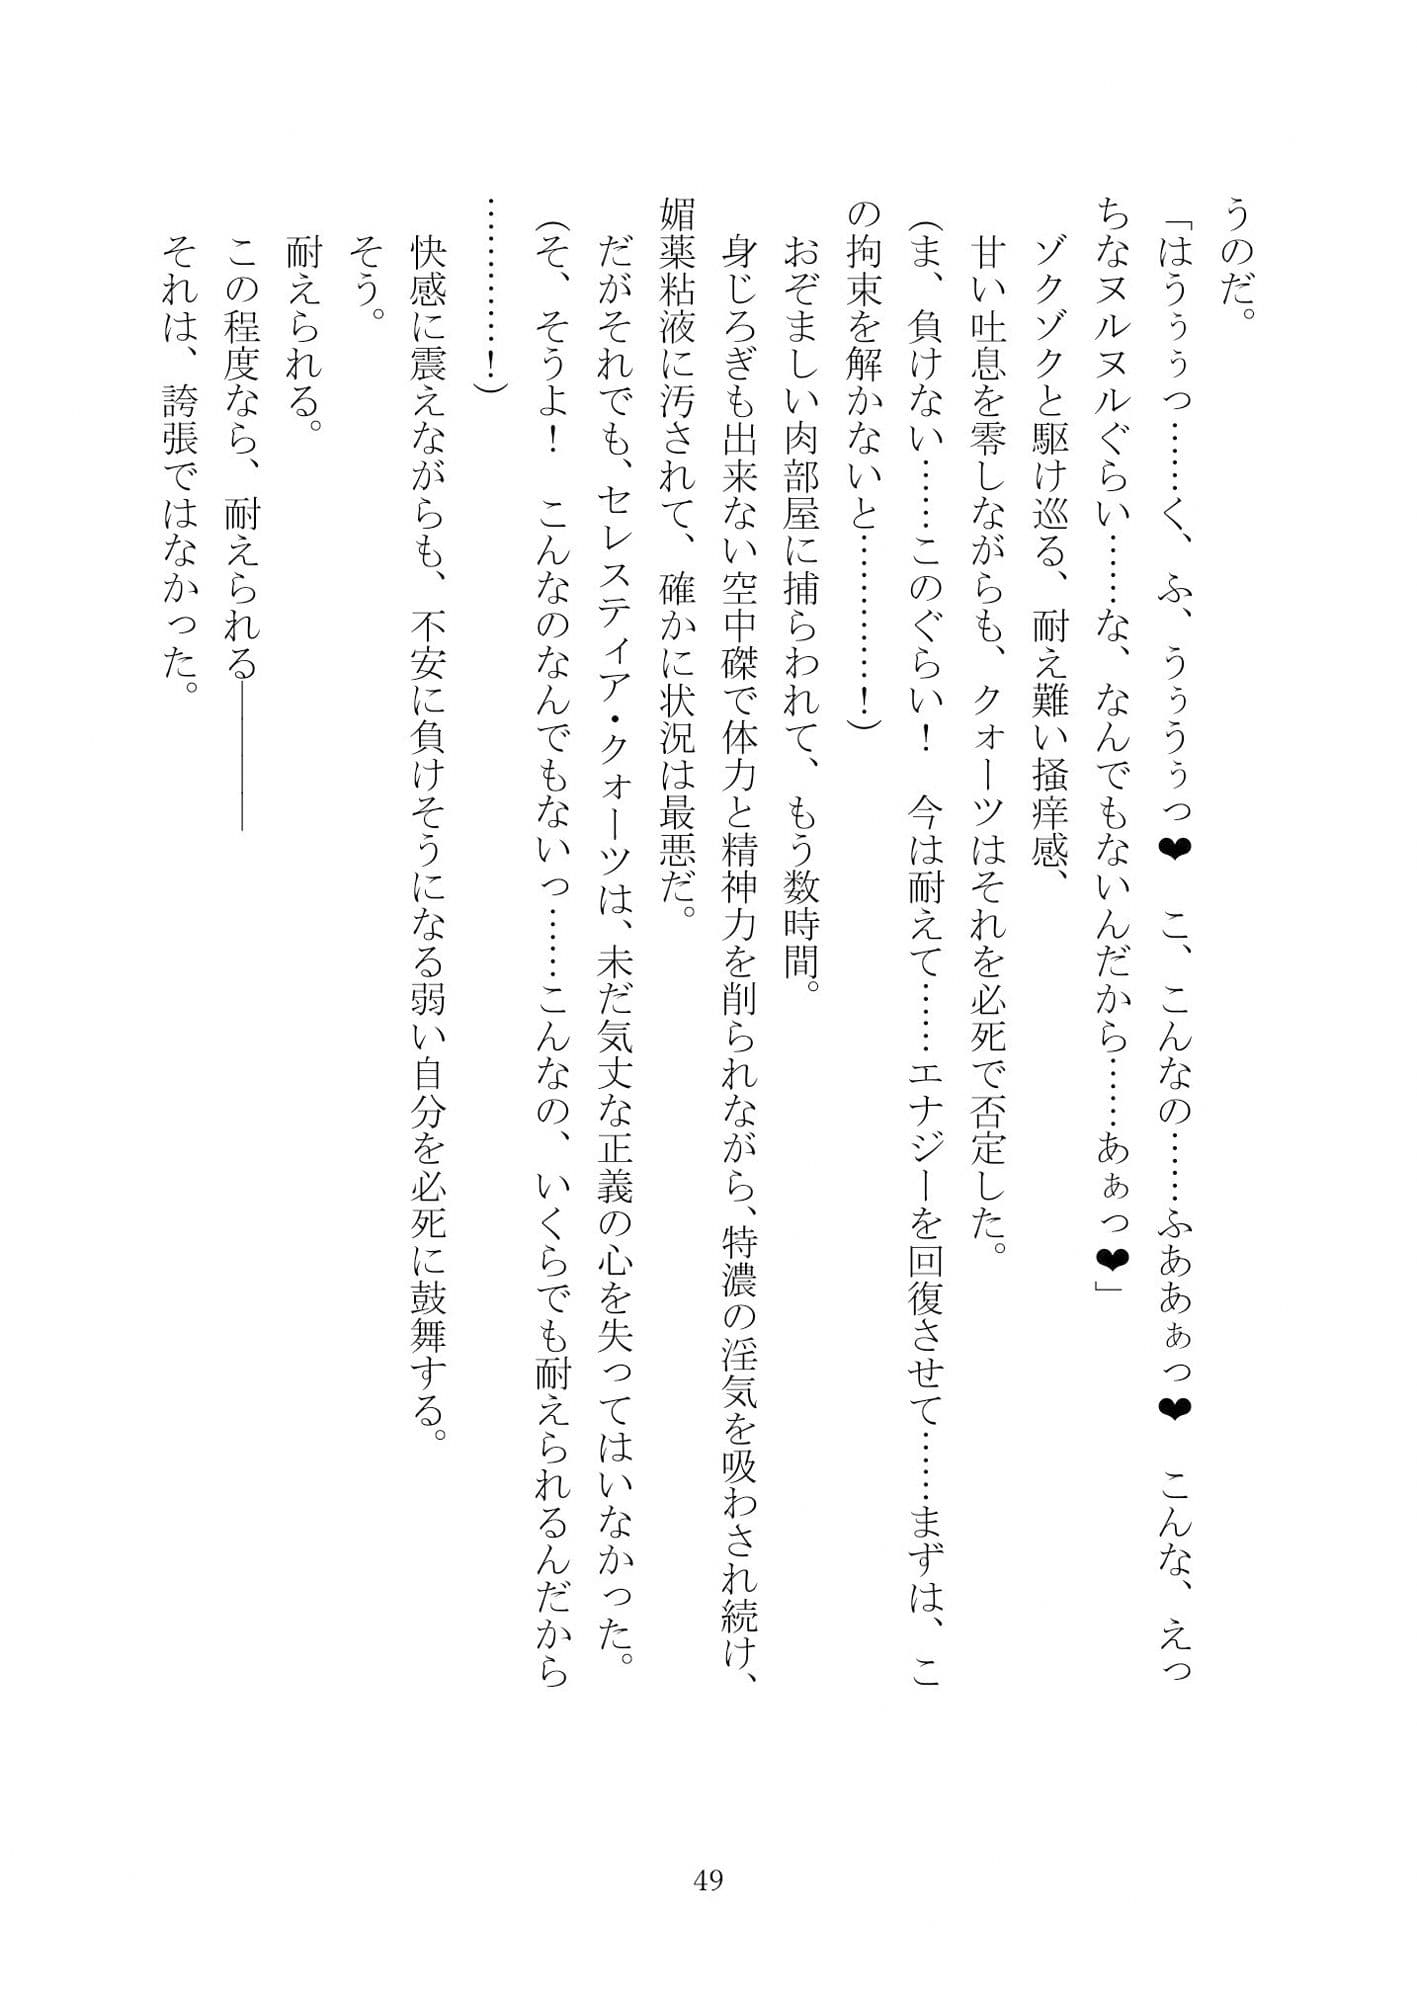 うのだ。
「はうぅぅっ……く、ふ、うぅうぅっ❤　こ、こんなの……ふああぁっ❤　こんな、えっ
ちなヌルヌルぐらい……な、なんでもないんだから……あぁっ❤」
　ゾクゾクと駆け巡る、耐え難い掻痒感、
　甘い吐息を零しながらも、クォーツはそれを必死で否定した。
（ま、負けない……このぐらい！　今は耐えて……エナジーを回復させて……まずは、こ
の拘束を解かないと…………！）
　おぞましい肉部屋に捕らわれて、もう数時間。
　身じろぎも出来ない空中磔で体力と精神力を削られながら、特濃の淫気を吸わされ続け、
媚薬粘液に汚されて、確かに状況は最悪だ。
　だがそれでも、セレスティア・クォーツは、未だ気丈な正義の心を失ってはいなかった。
（そ、そうよ！　こんなのなんでもないっ……こんなの、いくらでも耐えられるんだから
…………！）
　快感に震えながらも、不安に負けそうになる弱い自分を必死に鼓舞する。
　そう。
　耐えられる。
　この程度なら、耐えられる――――
　それは、誇張ではなかった。
49